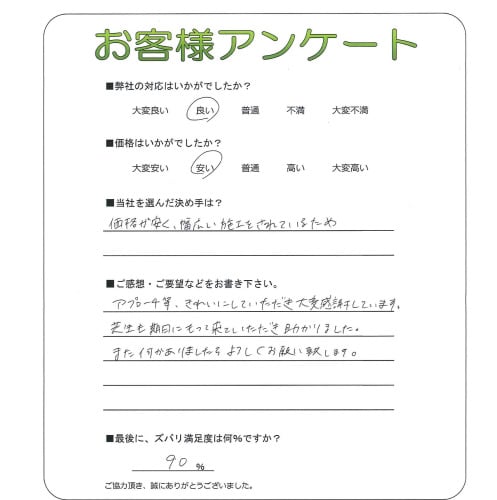 お客様アンケート
■弊社の対応はいかがでしたか？
大変良い 良い 普通 不満 大変不満
■価格はいかがでしたか？
大変安い 安い 普通 高い 大変高い
■当社を選んだ決め手は？
価格が安く、幅広い施工をされているため
■ご感想・ご要望などをお書き下さい。
アプローチ等、きれいにしていただき大変感謝しています。
芝生も期日にもって来ていただき助かりました。
また何かありましたらよろしくお願い致します。
■最後に、ズバリ満足度は何%ですか？
90 %
ご協力頂き、誠にありがとうございました。